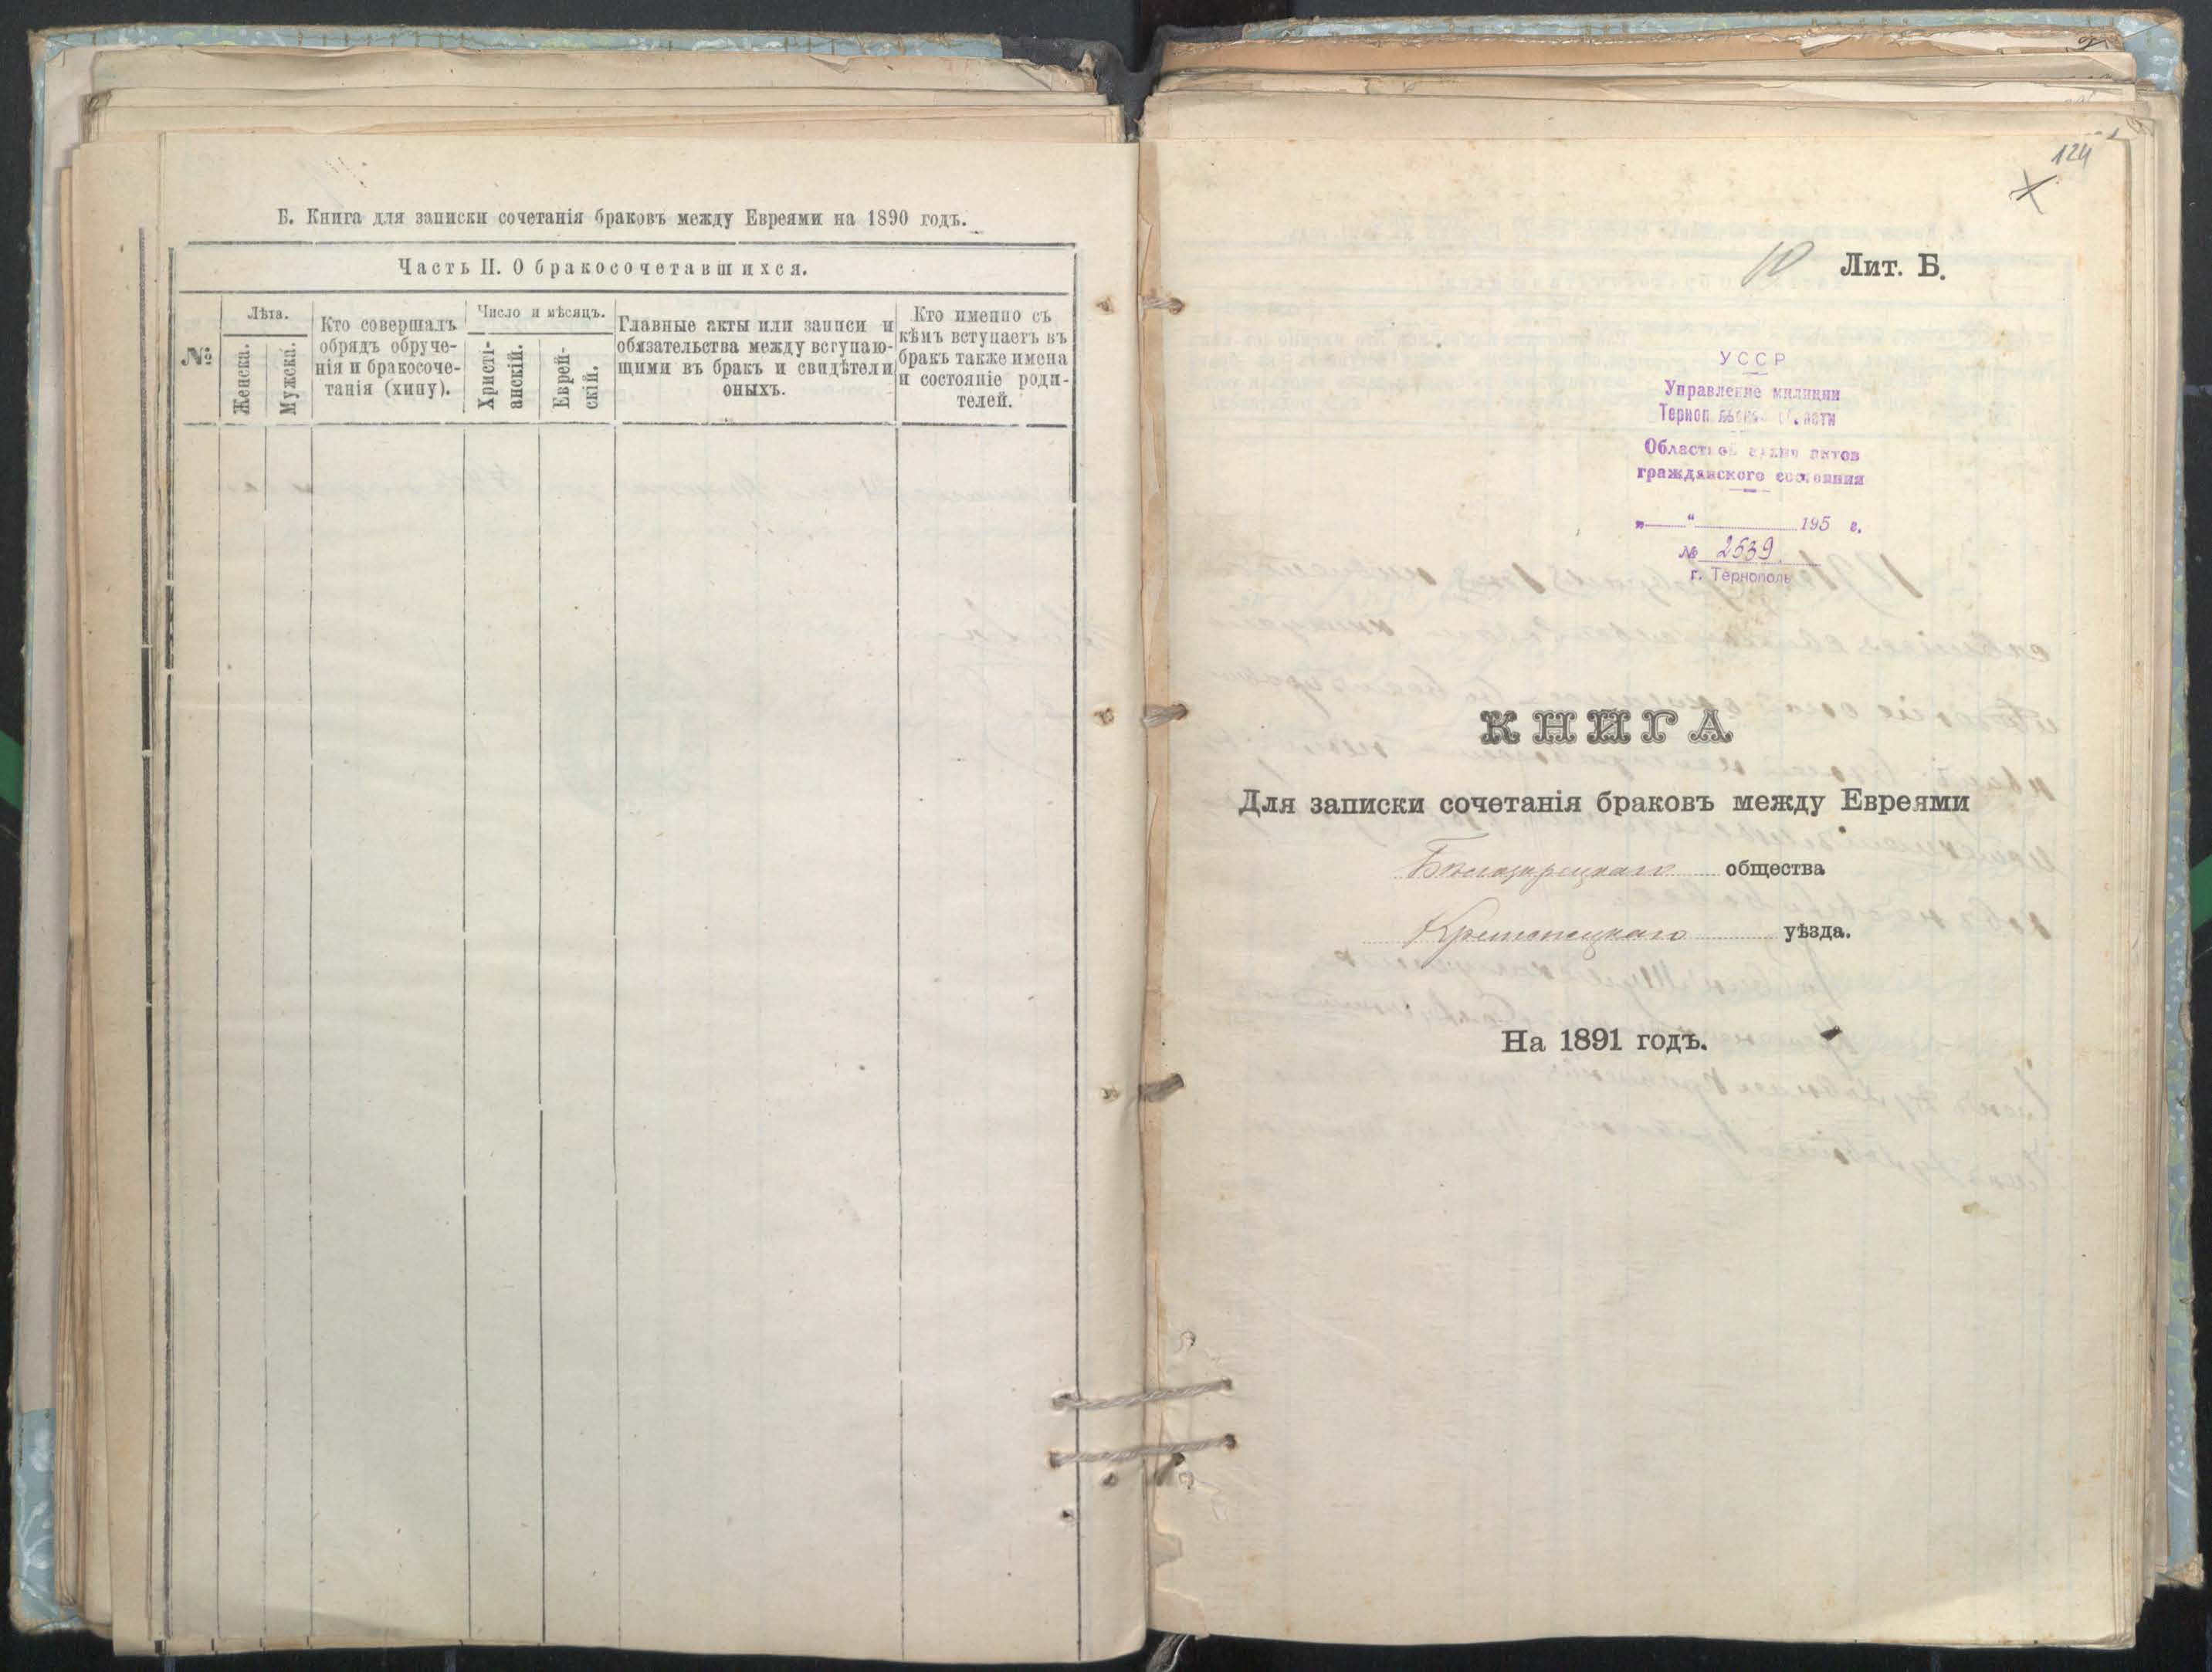 Б. Книга для записки сочетанія браковъ между Евреями на 1890 годъ.
Часть II. О бракосочетавшихся.
№
Лѣта.
Женска.
Мужска.
Кто совершалъ
обрядъ обруче-
нія и бракосоче-
танія (хипу).
Число и мѣсяцъ.
Христі-
анскій.
Еврей-
скій.
Главные акты или записи и
обязательства между вступаю-
щими въ бракъ и свидѣтели
оныхъ.
Кто именно съ
кѣмъ вступаетъ въ
бракъ также имена
и состояніе роди-
телей.
124
10 Лит. Б.
УССР
Управление милиции
Тернопольской области
Областной архив актов
гражданского состояния
„ “ 195 г.
№ 2539
г. Тернополь
КНИГА
Для записки сочетанія браковъ между Евреями
общества
Кременецкаго уѣзда.
На 1891 годъ.